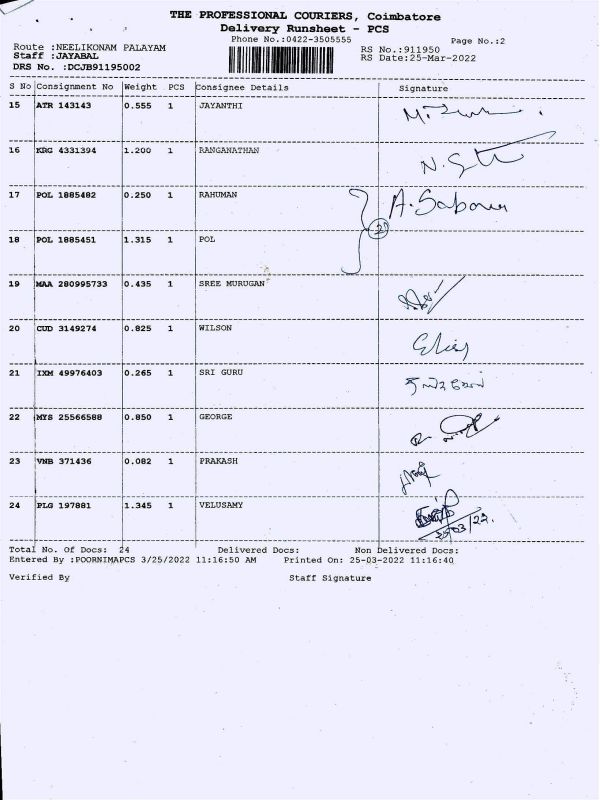 THE PROFESSIONAL COURIERS, Coimbatore
Delivery Runsheet - PCS
Phone No.:0422-3505555
Page No.:2
Route :NEELIKONAM PALAYAM
Staff :JAYABAL
DRS No. :DCJB91195002
RS No.:911950
RS Date:25-Mar-2022
S No Consignment No Weight PCS Consignee Details Signature
15 ATR 143143 0.555 1 JAYANTHI
16 KRG 4331394 1.200 1 RANGANATHAN
17 POL 1885482 0.250 1 RAHUMAN
18 POL 1885451 1.315 1 POL
19 MAA 280995733 0.435 1 SREE MURUGAN
20 CUD 3149274 0.825 1 WILSON
21 IXM 49976403 0.265 1 SRI GURU
22 MYS 25566588 0.850 1 GEORGE
23 VNB 371436 0.082 1 PRAKASH
24 PLG 197881 1.345 1 VELUSAMY
25/03/22.
Total No. Of Docs: 24 Delivered Docs: Non Delivered Docs:
Entered By :POORNIMAPCS 3/25/2022 11:16:50 AM Printed On: 25-03-2022 11:16:40
Verified By Staff Signature